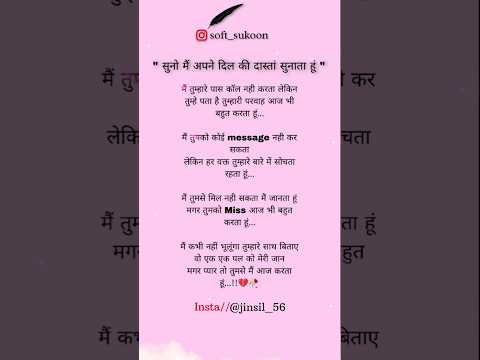 soft_sukoon
" सुनो मैं अपने दिल की दास्तां सुनाता हूं "
मैं तुम्हारे पास कॉल नही करता लेकिन
तुम्हे पता है तुम्हारी परवाह आज भी
बहुत करता हूं...
मैं तुमको कोई message नही कर
सकता
लेकिन हर वक्त तुम्हारे बारे में सोचता
रहता हूं...
मैं तुमसे मिल नही सकता मैं जानता हूं
मगर तुमको Miss आज भी बहुत
करता हूं...
मैं कभी नहीं भूलूंगा तुम्हारे साथ बिताए
वो एक एक पल को मेरी जान
मगर प्यार तो तुमसे मैं आज करता
हूं...!!💔🥀
Insta//@jinsil_56